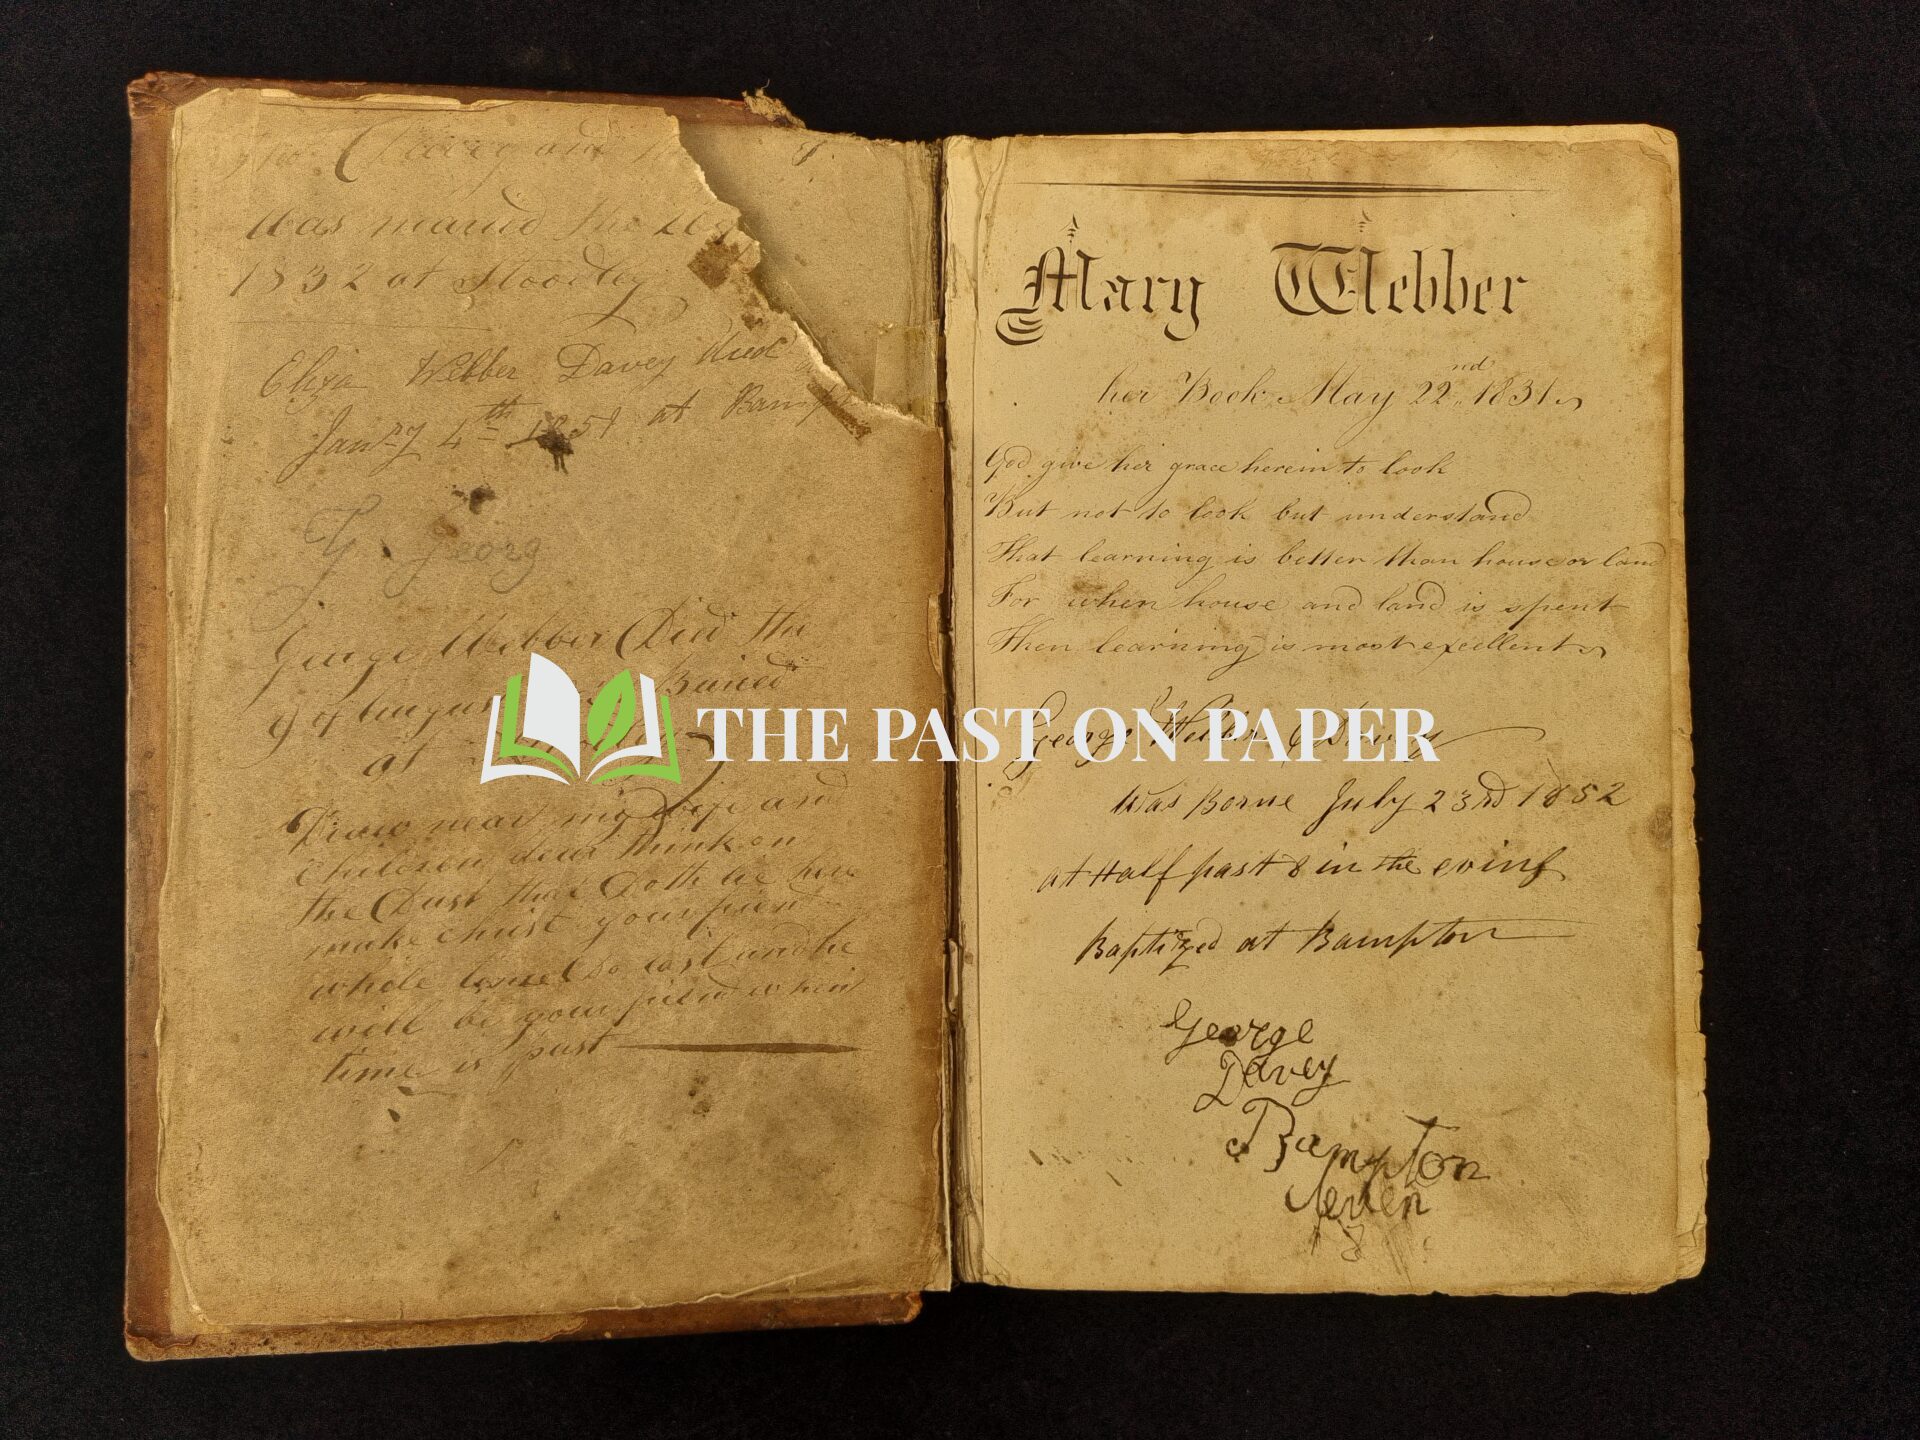 Davey and
was maried the
1832 at Stoodley
Eliza Webber Davey died
Janry 4th 1851 at Bamp
Georg
George Webber Died the
9 of August Buried
at
Draw near my wife and
Children dear think on
the Dust that Doth lie here
make christ your friend
whole time is so last and he
will be your friend when
time is past
Mary Webber
her Book May 22nd 1831
God give her grace herein to look
But not to look but understand
That learning is better than house or land
For when house and land is spent
Then learning is most excellent
George Webber Davey
was Borne July 23rd 1852
at Half past 8 in the eving
Baptized at Bampton
George
Davey
Bampton
THE PAST ON PAPER